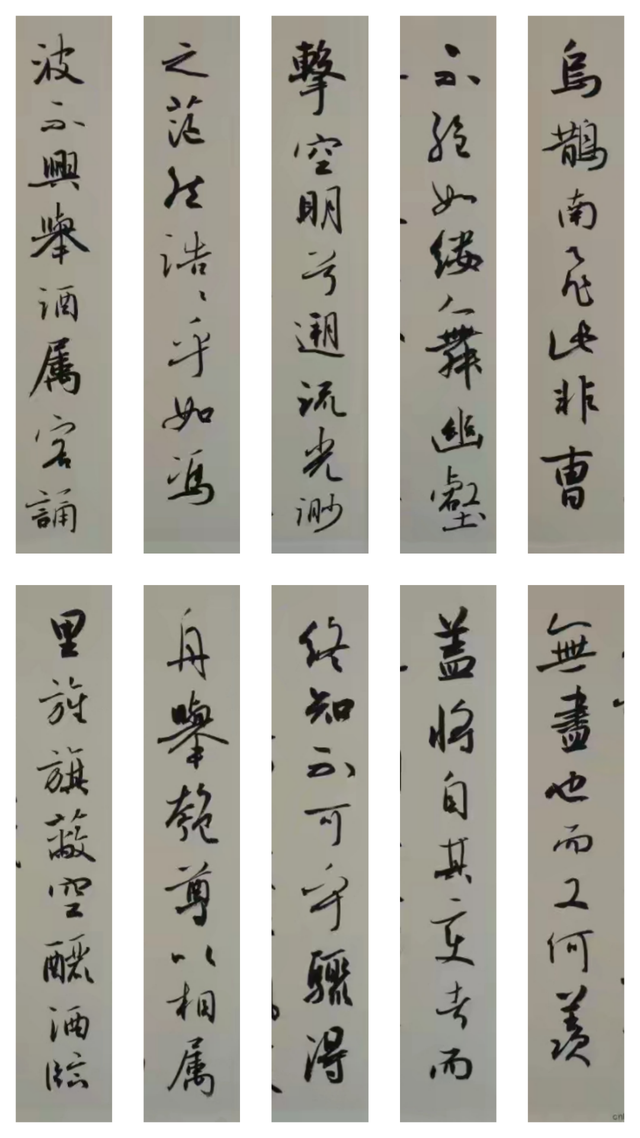 波不興舉酒属客誦
之茫然浩〻乎如馮
擊空明兮遡流光渺
不絕如縷舞幽壑
烏鵲南飛此非曹
里旌旗蔽空釃酒臨
舟舉匏尊以相属
終知不可乎驟得
蓋將自其變者而
無盡也而又何羨